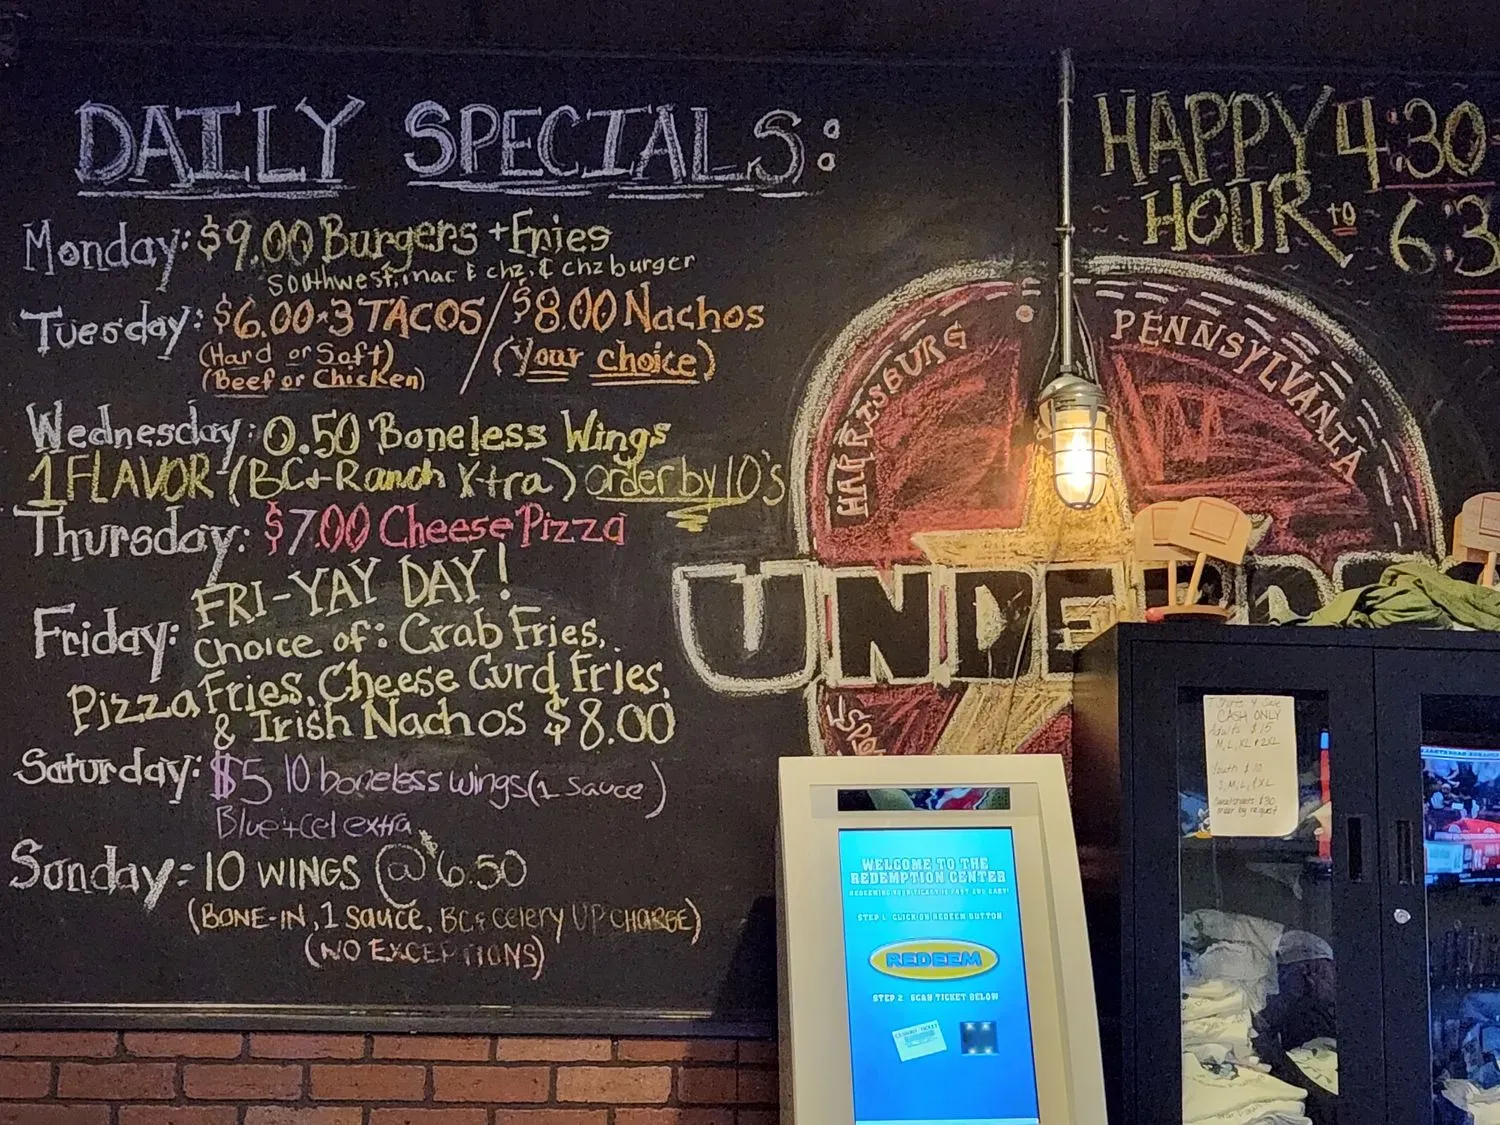 DAILY SPECIALS:
Monday: $9.00 Burgers + Fries
Southwest, mac & chz, & chz burger
Tuesday: $6.00 · 3 TACOS / $8.00 Nachos
(Hard or Soft)
(Beef or Chicken)
(your choice)
Wednesday: 0.50 Boneless Wings
1 FLAVOR (BC + Ranch Xtra) order by 10's
Thursday: $7.00 Cheese Pizza
FRI-YAY DAY!
Friday: Choice of: Crab Fries,
Pizza Fries, Cheese Curd Fries,
& Irish Nachos $8.00
Saturday: $5 10 boneless wings (1 sauce)
Blue + cel extra
Sunday: 10 WINGS @ $6.50
(BONE-IN, 1 sauce, BC & celery UP CHARGE)
(NO EXCEPTIONS)
HAPPY 4:30
HOUR to 6:3
HARRISBURG PENNSYLVANIA
UNDE
WELCOME TO THE
REDEMPTION CENTER
REDEEMING YOUR TICKET IS FAST AND EASY!
STEP 1 CLICK ON REDEEM BUTTON
REDEEM
STEP 2 SCAN TICKET BELOW
CASH ONLY
Adults $15
M, L, XL & 2XL
Youth $10